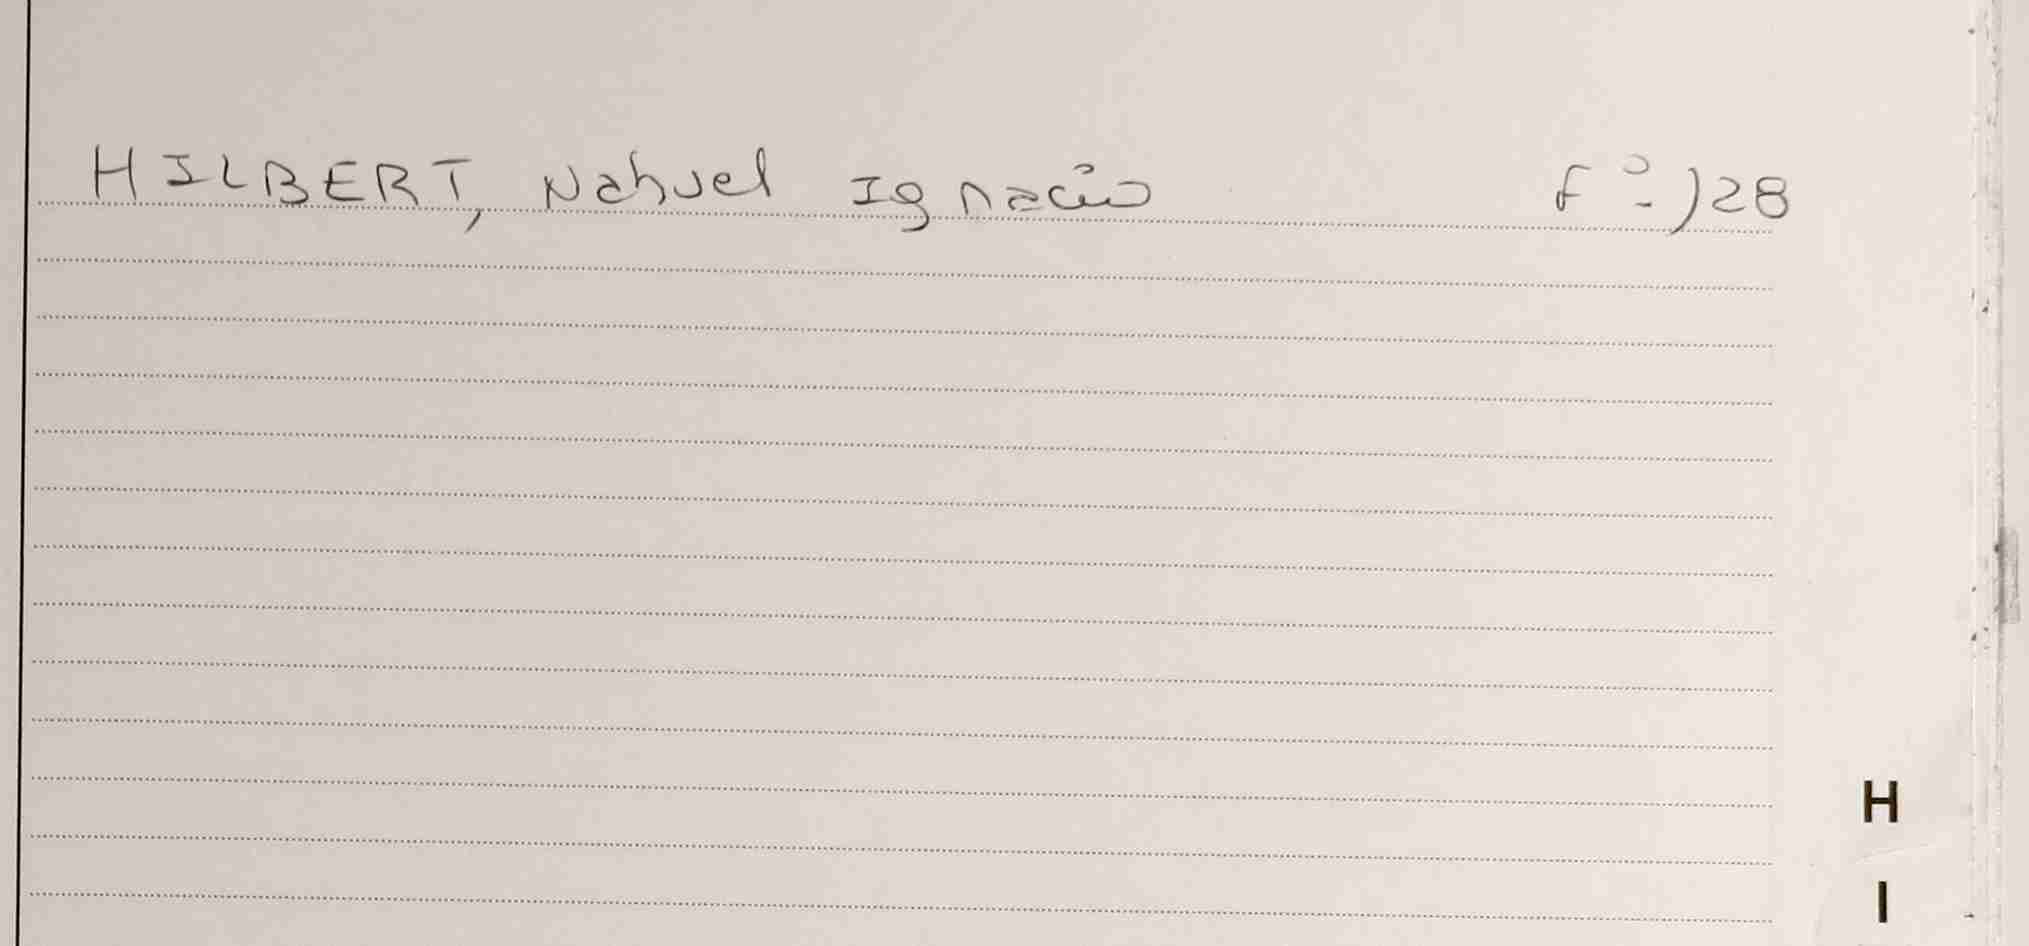 HILBERT, Nahuel Ignacio Fº 128
H
I